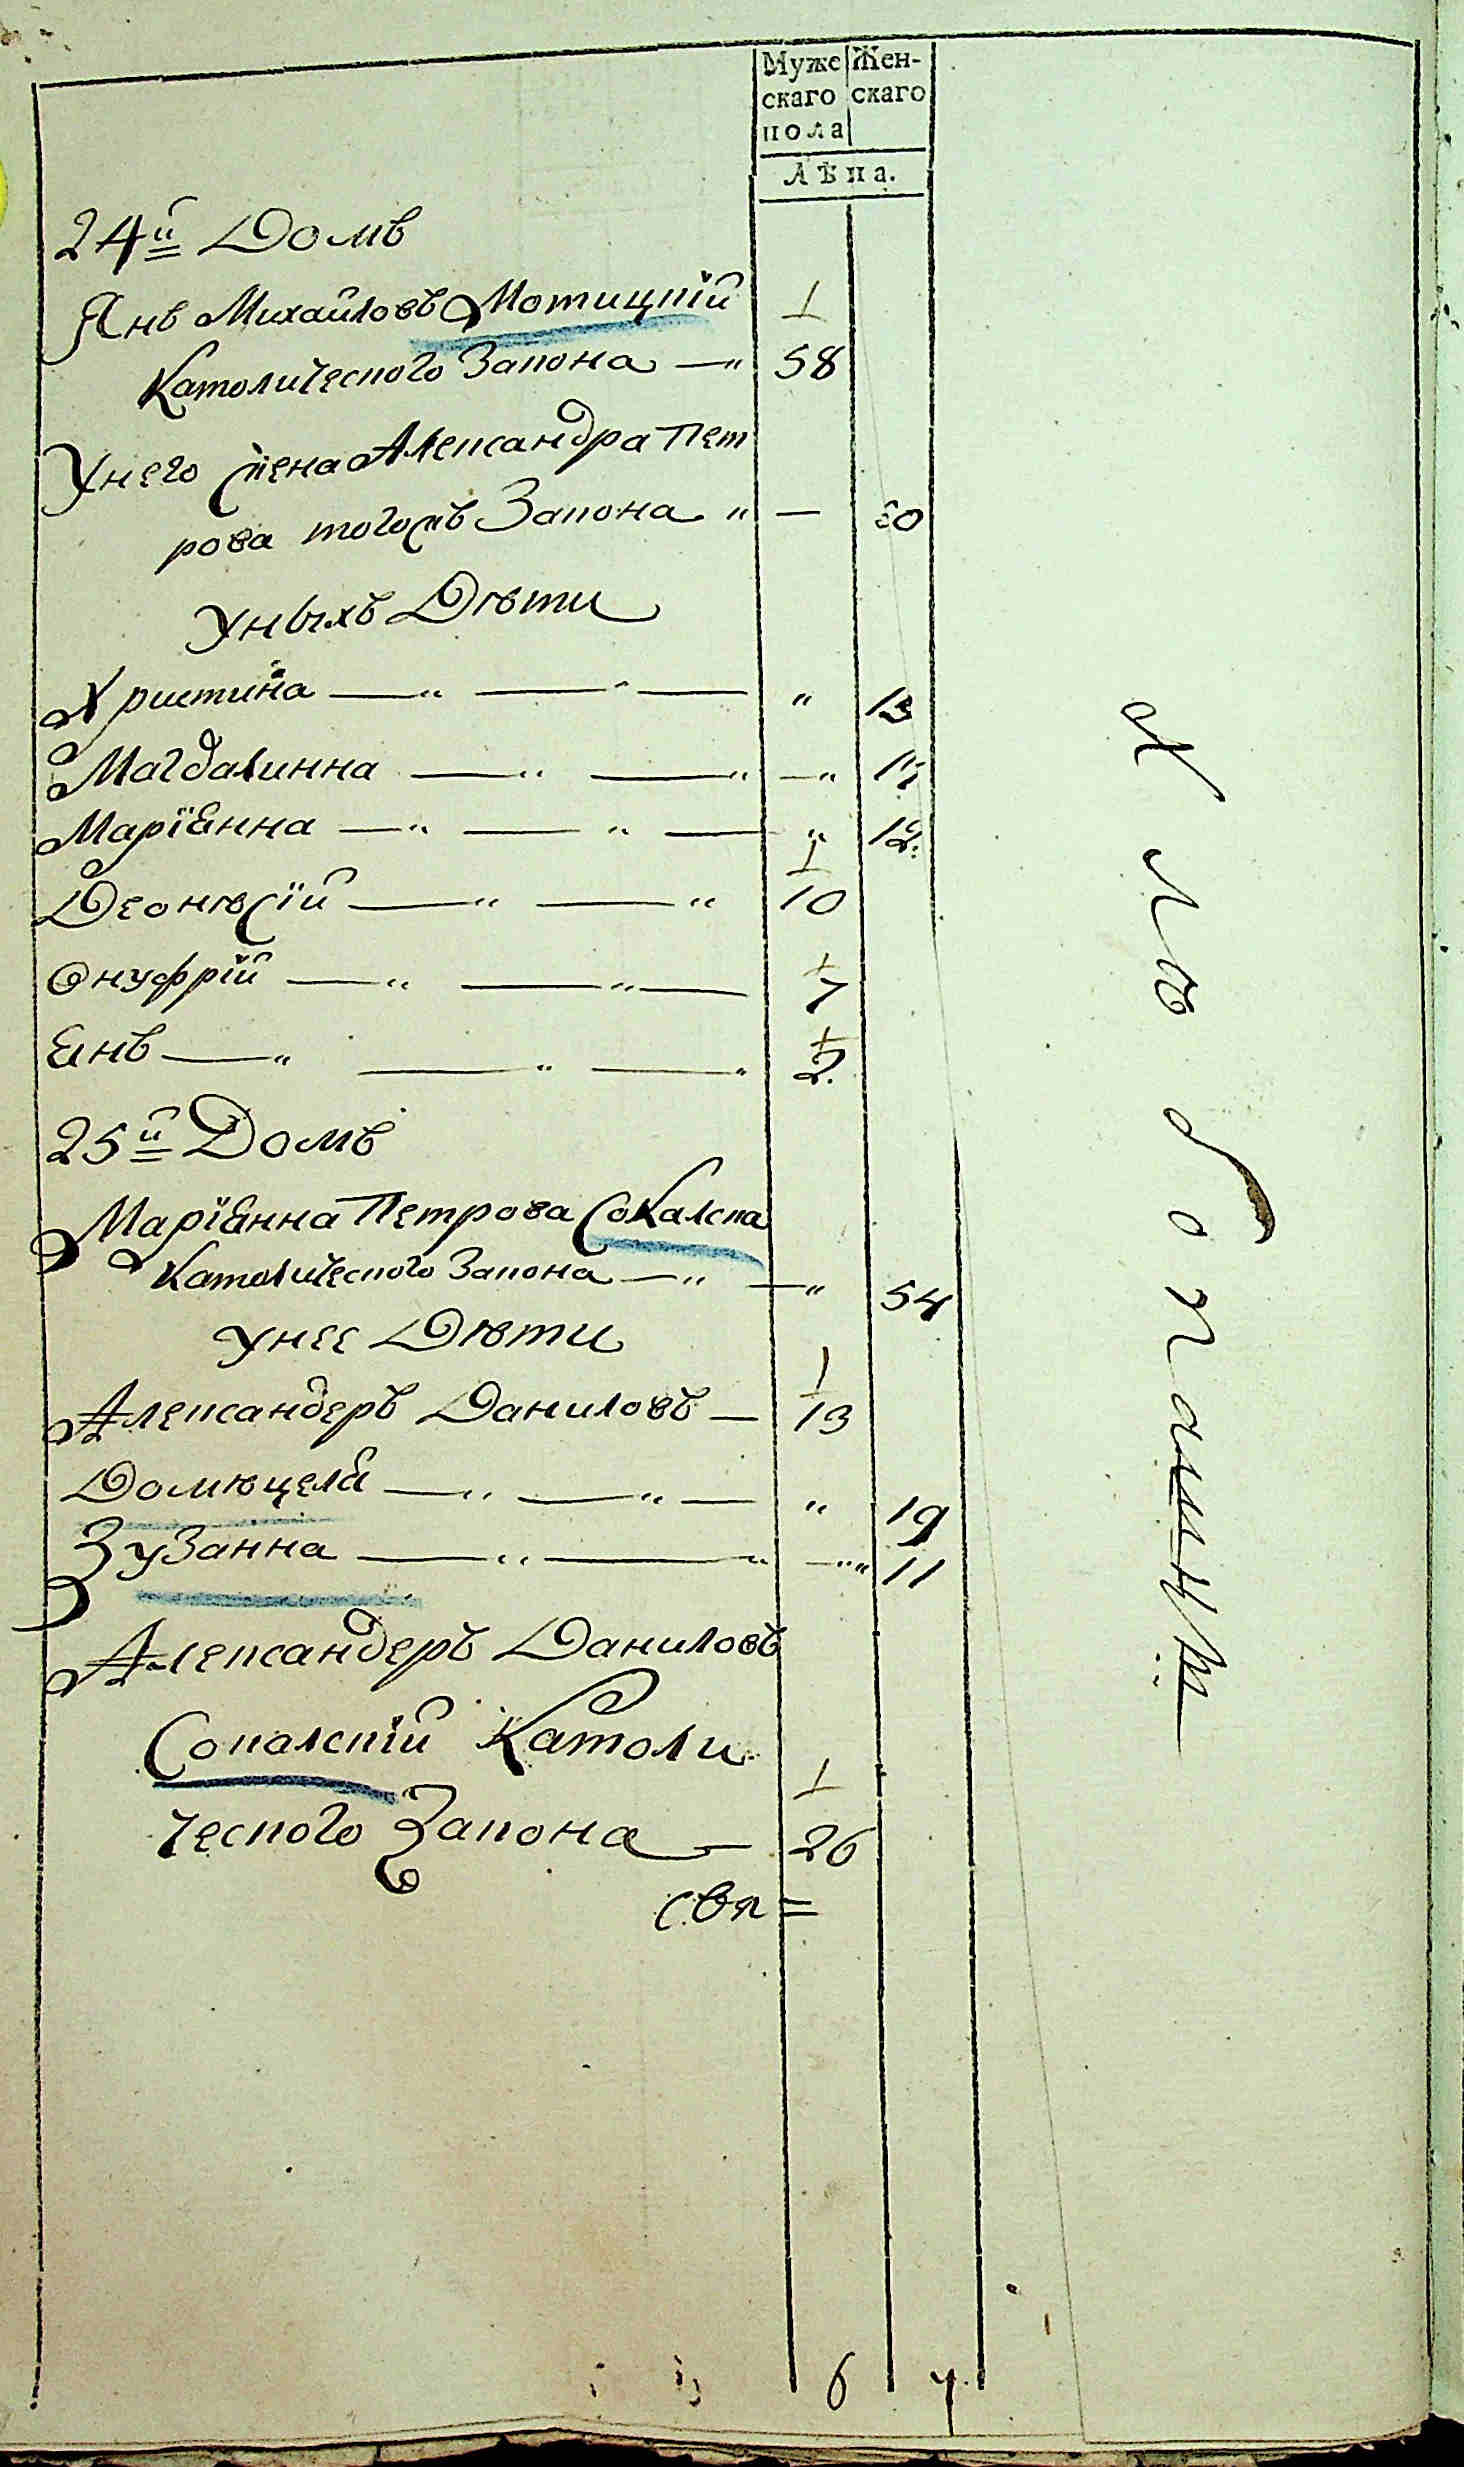 Муже Жен-
скаго скаго
пола
Лѣта.
24й Домъ
Янъ Михайловъ Мотицкій 1
Католического Закона —" 58
Унего жена Александра Пет
рова тогожъ Закона " —
Унихъ Дѣти
Христина —" — " — "
Магдалинна —" —" —"
Маріянна —" — " — " 12
Деонисій —" —" 1 10
Онуфрій —" —" — 1 7
Янъ —" —" —" 1 2.
25й Домъ
Маріянна Петрова Сокалска
Католического Закона —" —" 54
Унее Дѣти
Александеръ Даниловъ — 1 13
Домицеля —" —" — " 19
Зузанна —" —" —"" 11
Александеръ Даниловъ
Сокалскій Католи 1
ческого Закона — 26
6
Хлѣбопашцы